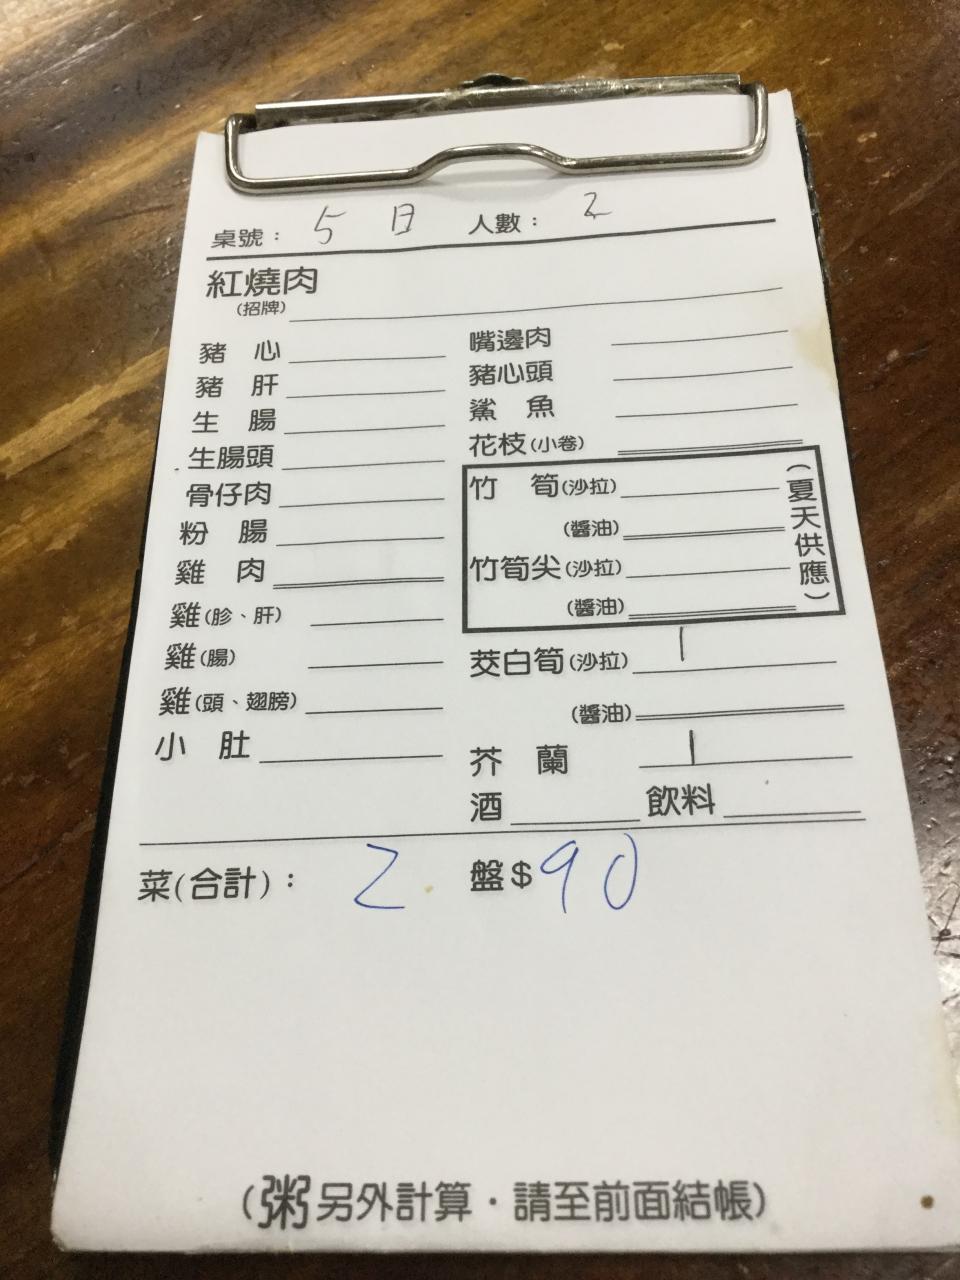 桌號： 5 日 人數： 2
紅燒肉
(招牌)
豬 心 嘴邊肉
豬 肝 豬心頭
生 腸 鯊 魚
生腸頭 花枝(小卷)
骨仔肉 竹 筍(沙拉)
粉 腸 (醬油)
雞 肉 竹筍尖(沙拉)
雞(胗、肝) (醬油)
(夏天供應)
雞(腸) 茭白筍(沙拉) |
雞(頭、翅膀) (醬油)
小 肚 芥 蘭 |
酒 飲料
菜(合計)： 2 盤$90
(粥另外計算．請至前面結帳)